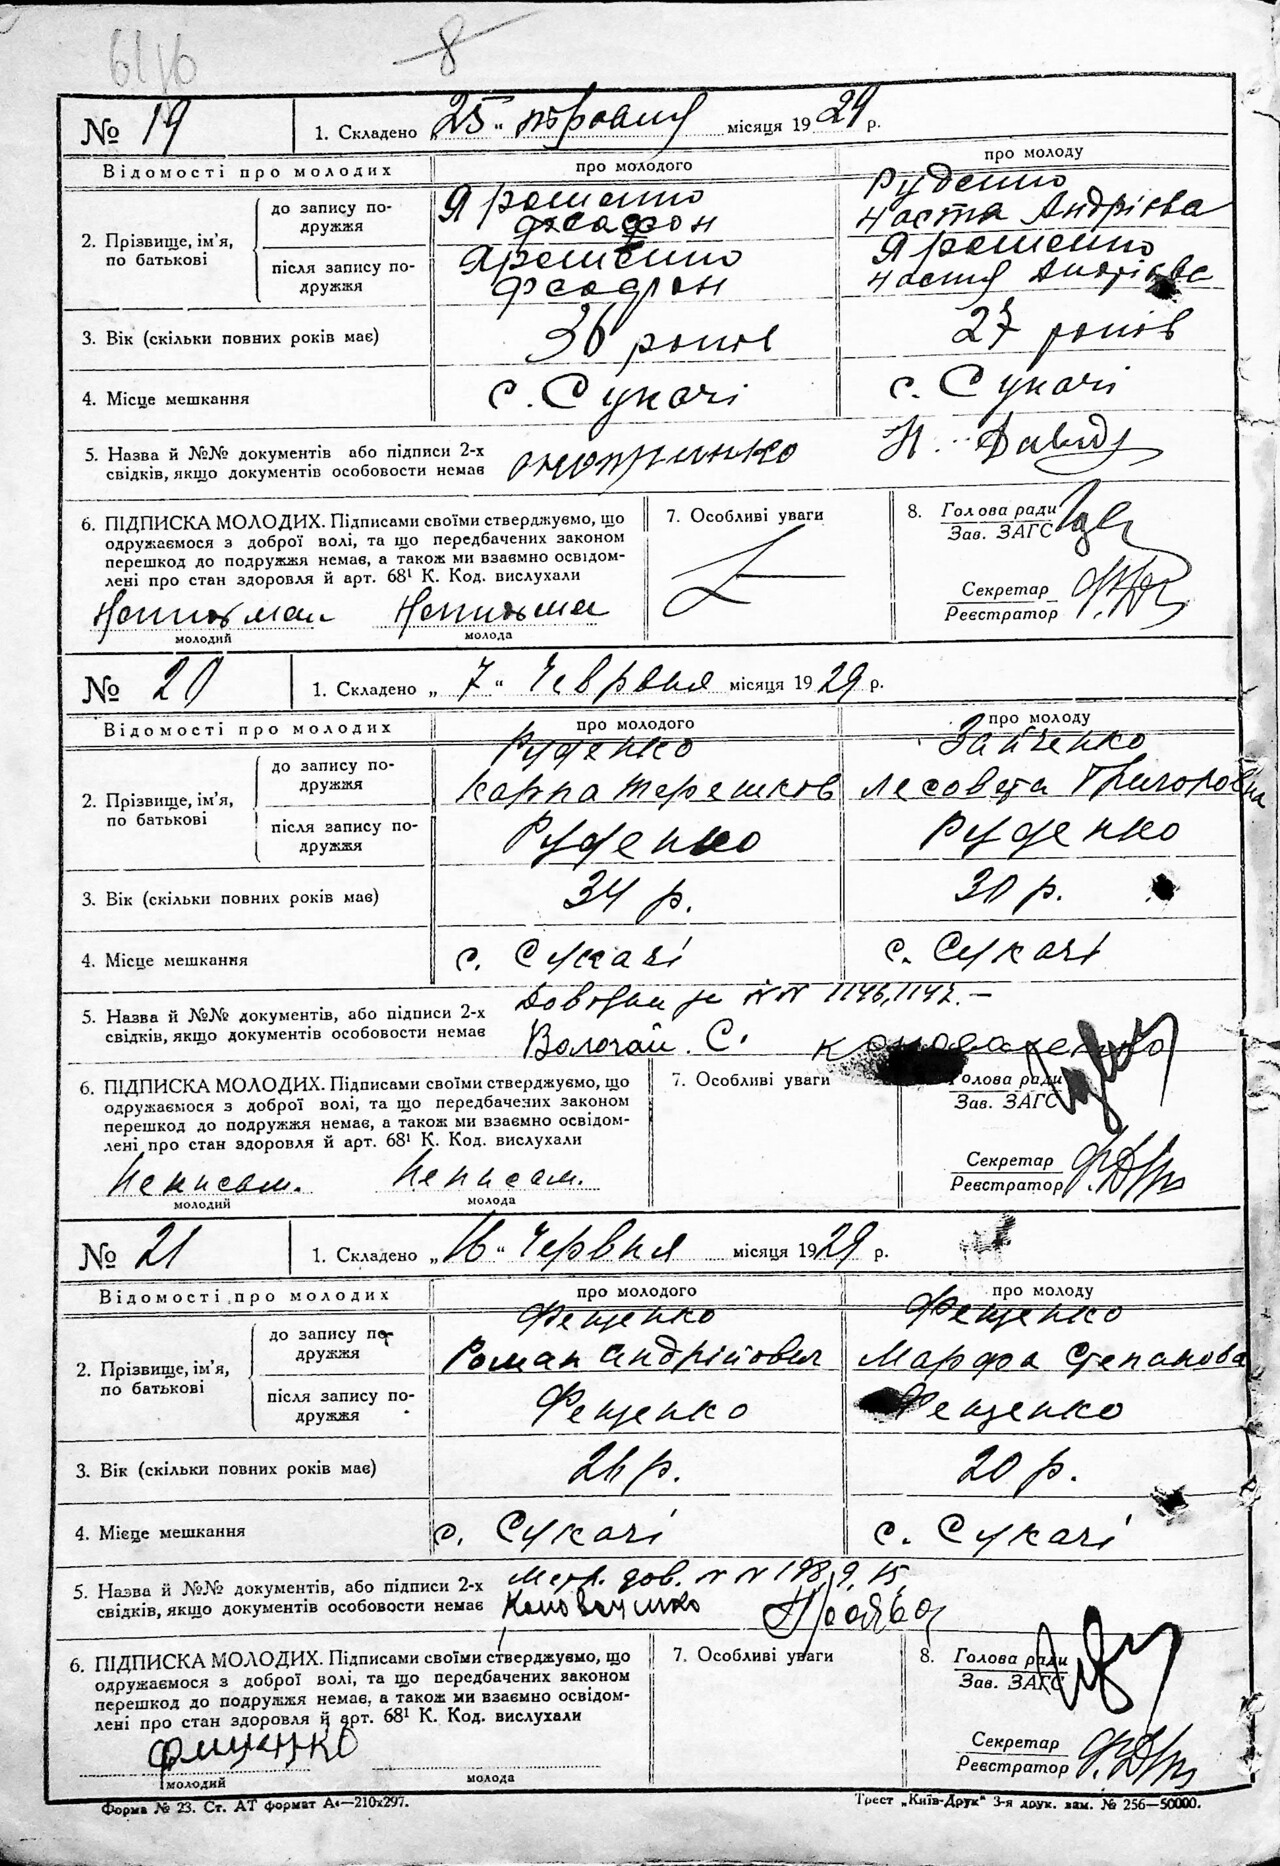 8
№ 19 1. Складено „25“ травня місяця 1929 р.
Відомості про молодих про молодого про молоду
2. Прізвище, ім'я, по батькові
до запису подружжя Ярошенко Феофон Руденко Настя Андрієва
після запису подружжя Ярошенко Феофон Ярошенко Настя Андрієва
3. Вік (скільки повних років має) 36 років 27 років
4. Місце мешкання с. Сукачі с. Сукачі
5. Назва й №№ документів або підписи 2-х
свідків, якщо документів особовости немає
6. ПІДПИСКА МОЛОДИХ. Підписами своїми стверджуємо, що
одружаємося з доброї волі, та що передбачених законом
перешкод до подружжя немає, а також ми взаємно освідом-
лені про стан здоровля й арт. 68¹ К. Код. вислухали
Неписьман Неписьмен
молодий молода
7. Особливі уваги
8. Голова ради
Зав. ЗАГС
Секретар
Реєстратор
№ 20 1. Складено „7“ Червня місяця 1929 р.
Відомості про молодих про молодого про молоду
2. Прізвище, ім'я, по батькові
до запису подружжя Руденко Карпа Терешков Зайченко Лесовета Григоровна
після запису подружжя Руденко Руденко
3. Вік (скільки повних років має) 34 р. 30 р.
4. Місце мешкання с. Сукачі с. Сукачі
5. Назва й №№ документів, або підписи 2-х
свідків, якщо документів особовости немає
№№ 1146, 1147. –
Вологай. С. Коноваленко
6. ПІДПИСКА МОЛОДИХ. Підписами своїми стверджуємо, що
одружаємося з доброї волі, та що передбачених законом
перешкод до подружжя немає, а також ми взаємно освідом-
лені про стан здоровля й арт. 68¹ К. Код. вислухали
Неписам. Неписам.
молодий молода
7. Особливі уваги
Голова ради
Зав. ЗАГС
Секретар
Реєстратор
№ 21 1. Складено „16“ Червня місяця 1929 р.
Відомості про молодих про молодого про молоду
2. Прізвище, ім'я, по батькові
до запису подружжя Фещенко Роман Андрійович Фещенко Марфа Степанова
після запису подружжя Фещенко Фещенко
3. Вік (скільки повних років має) 26 р. 20 р.
4. Місце мешкання с. Сукачі с. Сукачі
5. Назва й №№ документів, або підписи 2-х
свідків, якщо документів особовости немає
дов. №№ 198, 9, 15
6. ПІДПИСКА МОЛОДИХ. Підписами своїми стверджуємо, що
одружаємося з доброї волі, та що передбачених законом
перешкод до подружжя немає, а також ми взаємно освідом-
лені про стан здоровля й арт. 68¹ К. Код. вислухали
молодий молода
7. Особливі уваги
8. Голова ради
Зав. ЗАГС
Секретар
Реєстратор
Форма № 23. Ст. АТ формат А₄—210х297. Трест „Київ-Друк“ 3-я друк. зам. № 256—50000.